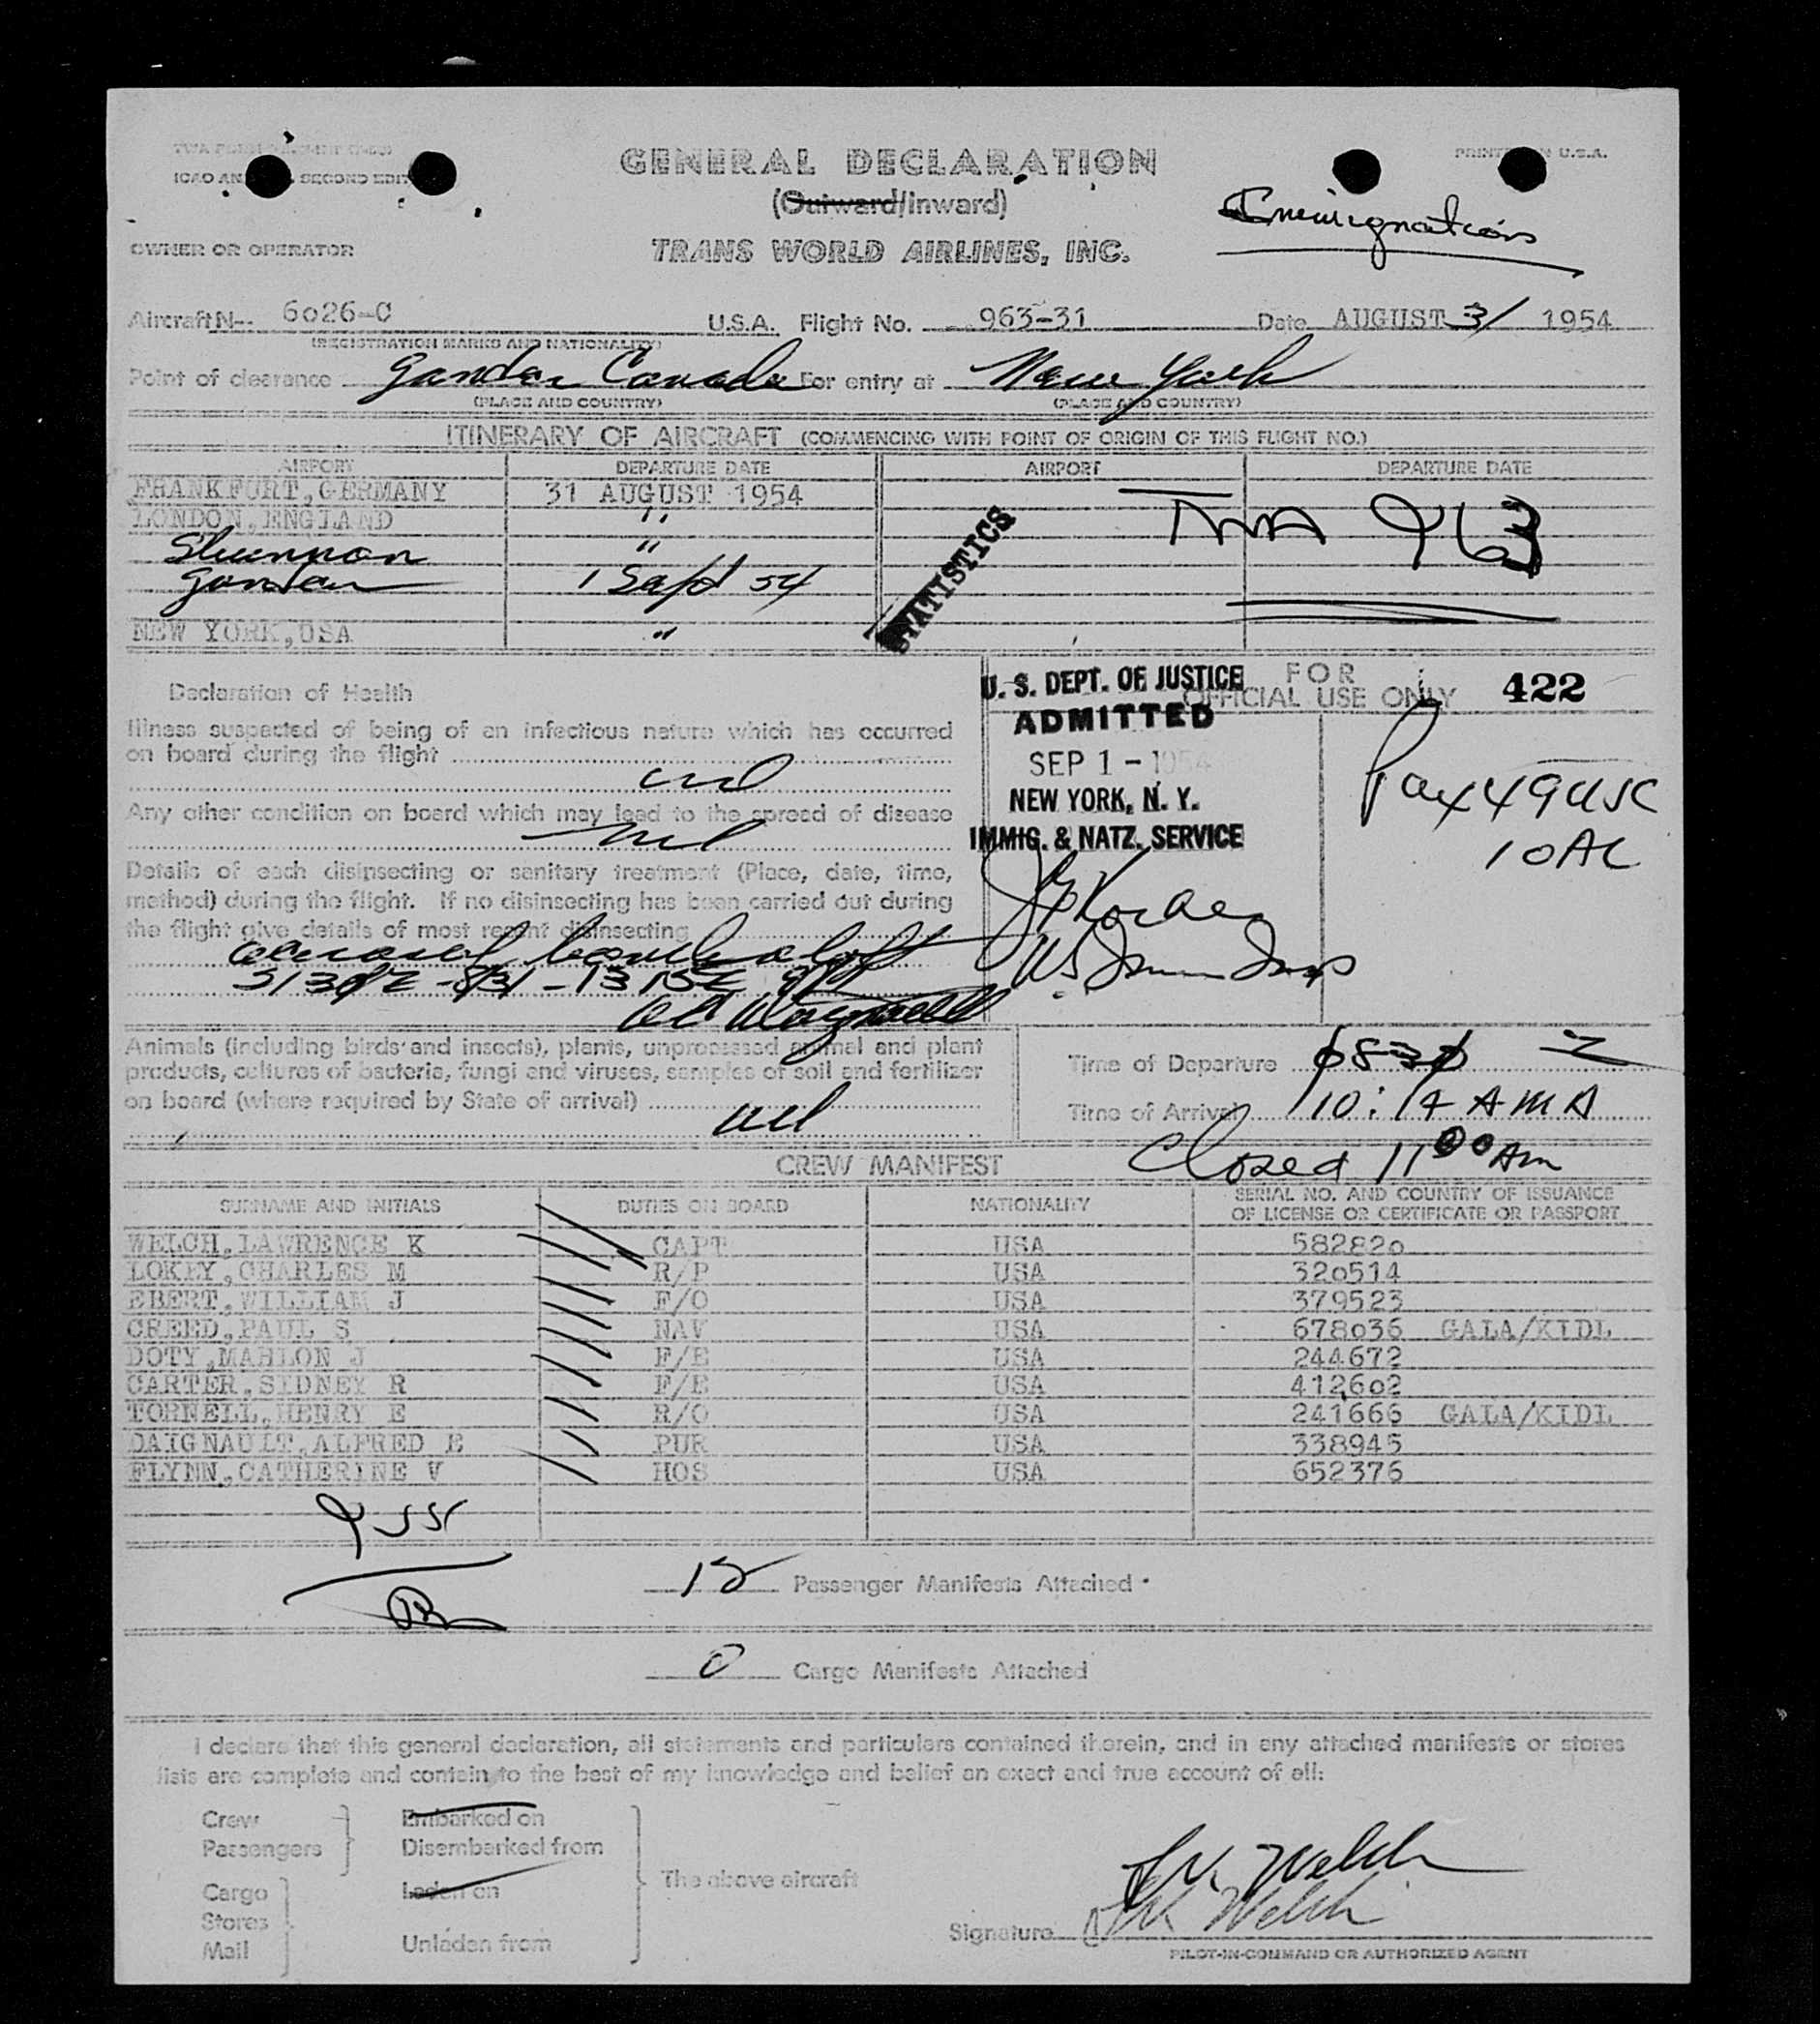 GENERAL DECLARATION
PRINTED IN U.S.A.
SECOND EDIT
(Outward/Inward)
Immigration
OWNER OR OPERATOR
TRANS WORLD AIRLINES, INC.
Aircraft N-. 6026-C U.S.A. Flight No. 963-31 Date AUGUST 31 1954
(REGISTRATION MARKS AND NATIONALITY)
Point of clearance Gander Canada For entry at New York
(PLACE AND COUNTRY) (PLACE AND COUNTRY)
ITINERARY OF AIRCRAFT (COMMENCING WITH POINT OF ORIGIN OF THIS FLIGHT NO.)
AIRPORT DEPARTURE DATE AIRPORT DEPARTURE DATE
FRANKFURT,GERMANY 31 AUGUST 1954
LONDON,ENGLAND "
Shannon "
Gander 1 Sept 54
NEW YORK,USA "
TWA 963
STATISTICS
Declaration of Health
Illness suspected of being of an infectious nature which has occurred
on board during the flight
nil
Any other condition on board which may lead to the spread of disease
nil
Details of each disinsecting or sanitary treatment (Place, date, time,
method) during the flight. If no disinsecting has been carried out during
the flight give details of most recent disinsecting
aerosol bomb aloft
U. S. DEPT. OF JUSTICE
ADMITTED
SEP 1 - 1954
NEW YORK, N. Y.
IMMIG. & NATZ. SERVICE
FOR
OFFICIAL USE ONLY 422
Pax 49 USC
10 AC
Animals (including birds and insects), plants, unprocessed animal and plant
products, cultures of bacteria, fungi and viruses, samples of soil and fertilizer
on board (where required by State of arrival)
nil
Time of Departure 0830 Z
Time of Arrival 10:14 AM A
Closed 11 00 AM
CREW MANIFEST
SURNAME AND INITIALS DUTIES ON BOARD NATIONALITY SERIAL NO. AND COUNTRY OF ISSUANCE
OF LICENSE OR CERTIFICATE OR PASSPORT
WELCH,LAWRENCE K CAPT USA 582820
LOKEY,CHARLES M R/P USA 320514
EBERT,WILLIAM J F/O USA 379523
CREED,PAUL S NAV USA 678036 GALA/KIDL
DOTY,MAHLON J F/E USA 244672
CARTER,SIDNEY R F/E USA 412602
TORNELL,HENRY E R/O USA 241666 GALA/KIDL
DAIGNAULT,ALFRED E PUR USA 338945
FLYNN,CATHERINE V HOS USA 652376
12 Passenger Manifests Attached
0 Cargo Manifests Attached
I declare that this general declaration, all statements and particulars contained therein, and in any attached manifests or stores
lists are complete and contain to the best of my knowledge and belief an exact and true account of all:
Crew Embarked on
Passengers Disembarked from
The above aircraft
Cargo Laden on
Stores
Mail Unladen from
L K Welch
Signature LK Welch
PILOT-IN-COMMAND OR AUTHORIZED AGENT